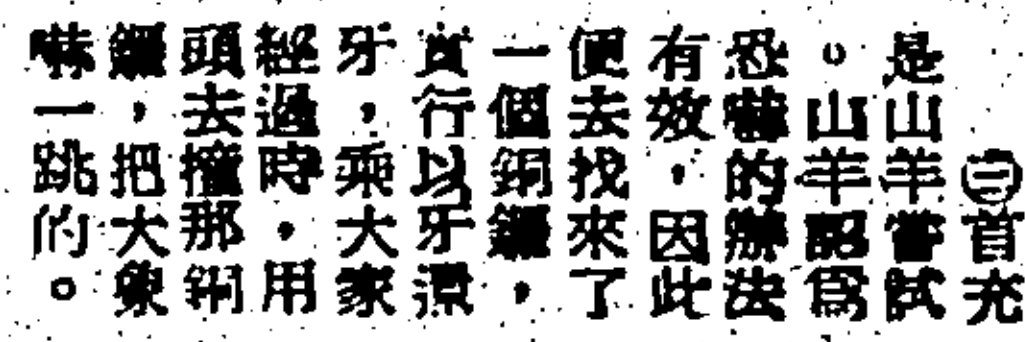 ㊂首先
是山羊嘗試
。山羊認爲
恐嚇的辦法
有效，因此
便去找來了
一個銅鑼，
實行以牙還
牙，乘大家
經過時，用
頭去撞那銅
鑼，把大象
嚇一跳的。